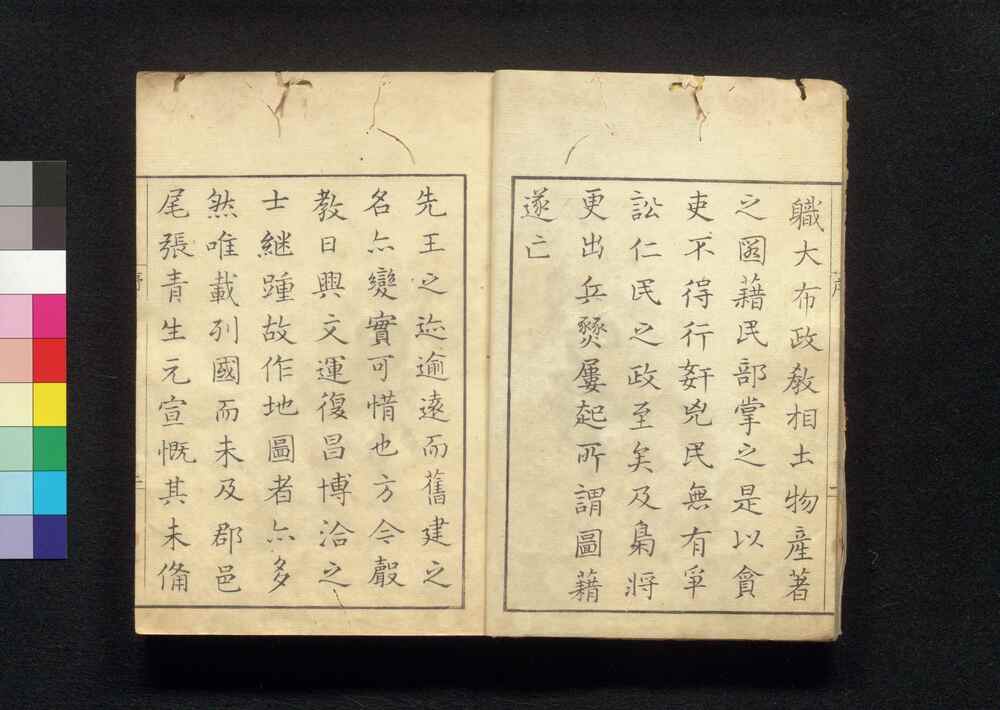 職大布政教相土物産著
之圖藉民部掌之是以貪
吏不得行姧兇民無有爭
訟仁民之政至矣及梟將
更出兵燹屢起所謂圖藉
遂亡
先王之迹逾遠而舊建之
名亦變實可惜也方今嚴
教日興文運復昌博洽之
士継踵故作地圖者亦多
然唯載列國而未及郡邑
尾張青生元宣慨其未備